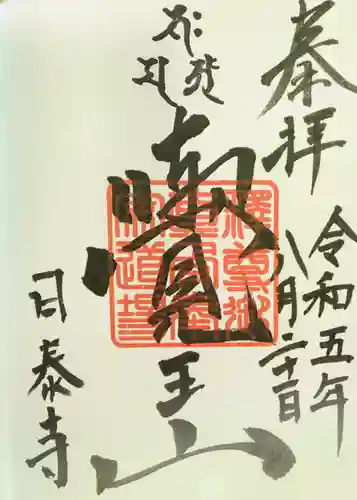 奉拝
令和五年
八月二十日
覺王山
日泰寺